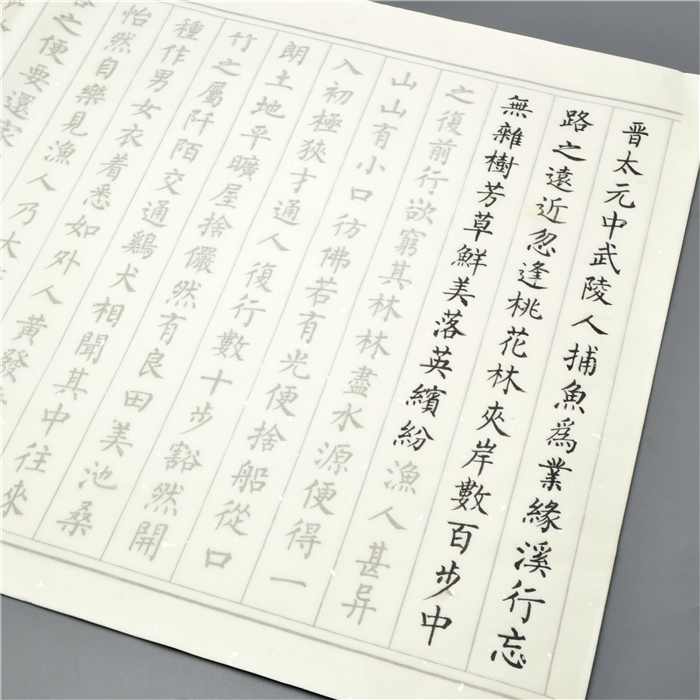 晋太元中武陵人捕魚爲業緣溪行忘
路之遠近忽逢桃花林夾岸數百步中
無雜樹芳草鮮美落英繽紛漁人甚异
之復前行欲窮其林林盡水源便得一
山山有小口彷佛若有光便捨船從口
入初極狹才通人復行數十步豁然開
朗土地平曠屋捨儼然有良田美池桑
竹之屬阡陌交通鷄犬相聞其中往來
種作男女衣着悉如外人黄發
怡然自樂見漁人乃大
之便要還家